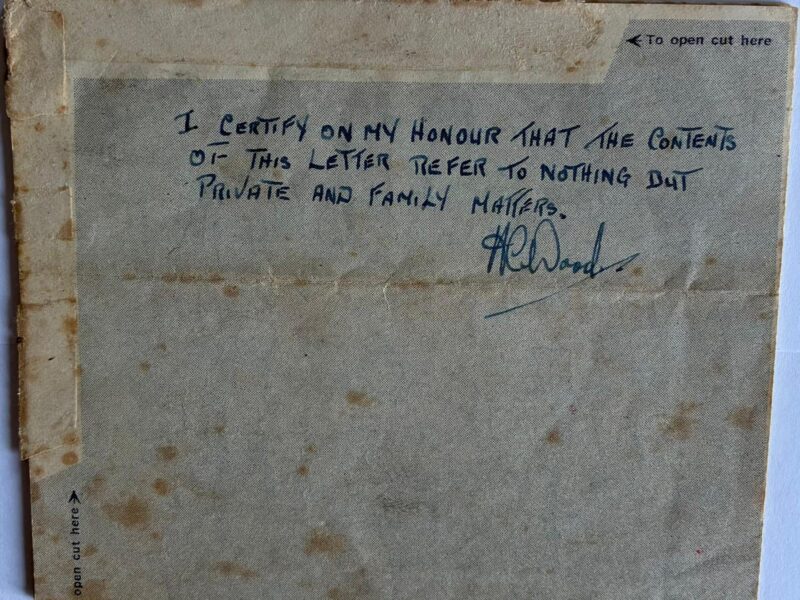 To open cut here
I CERTIFY ON MY HONOUR THAT THE CONTENTS
OF THIS LETTER REFER TO NOTHING BUT
PRIVATE AND FAMILY MATTERS.
HCWoods
open cut here